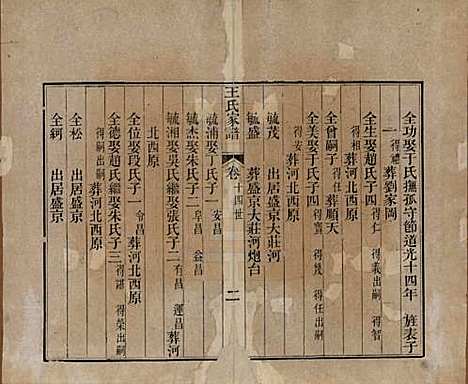 全功娶于氏撫孤守節道光十四年 旌表子
一 得禮 葬劉家岡
全生娶趙氏子四 得仁 得義出嗣 得智
得相 葬河北西原
全曾嗣子 得任 葬順天
全美娶于氏子四 得寬 得幾 得任出嗣
得安 葬河北西原
毓茂 出居盛京大莊河
毓盛 葬盛京大莊河炮台
王氏家譜 卷 十四世 二
毓浦娶丁氏子一 安昌
毓 娶朱氏子二 阜昌 益昌
毓湘娶吳氏繼娶張氏子二 有昌 運昌 葬河
北西原
全位娶段氏子一 令昌 葬河北西原
全德娶趙氏繼娶朱氏子三 得諶 得榮出嗣
得嗣出嗣 葬河北西原
全松 出居盛京
全鈳 出居盛京